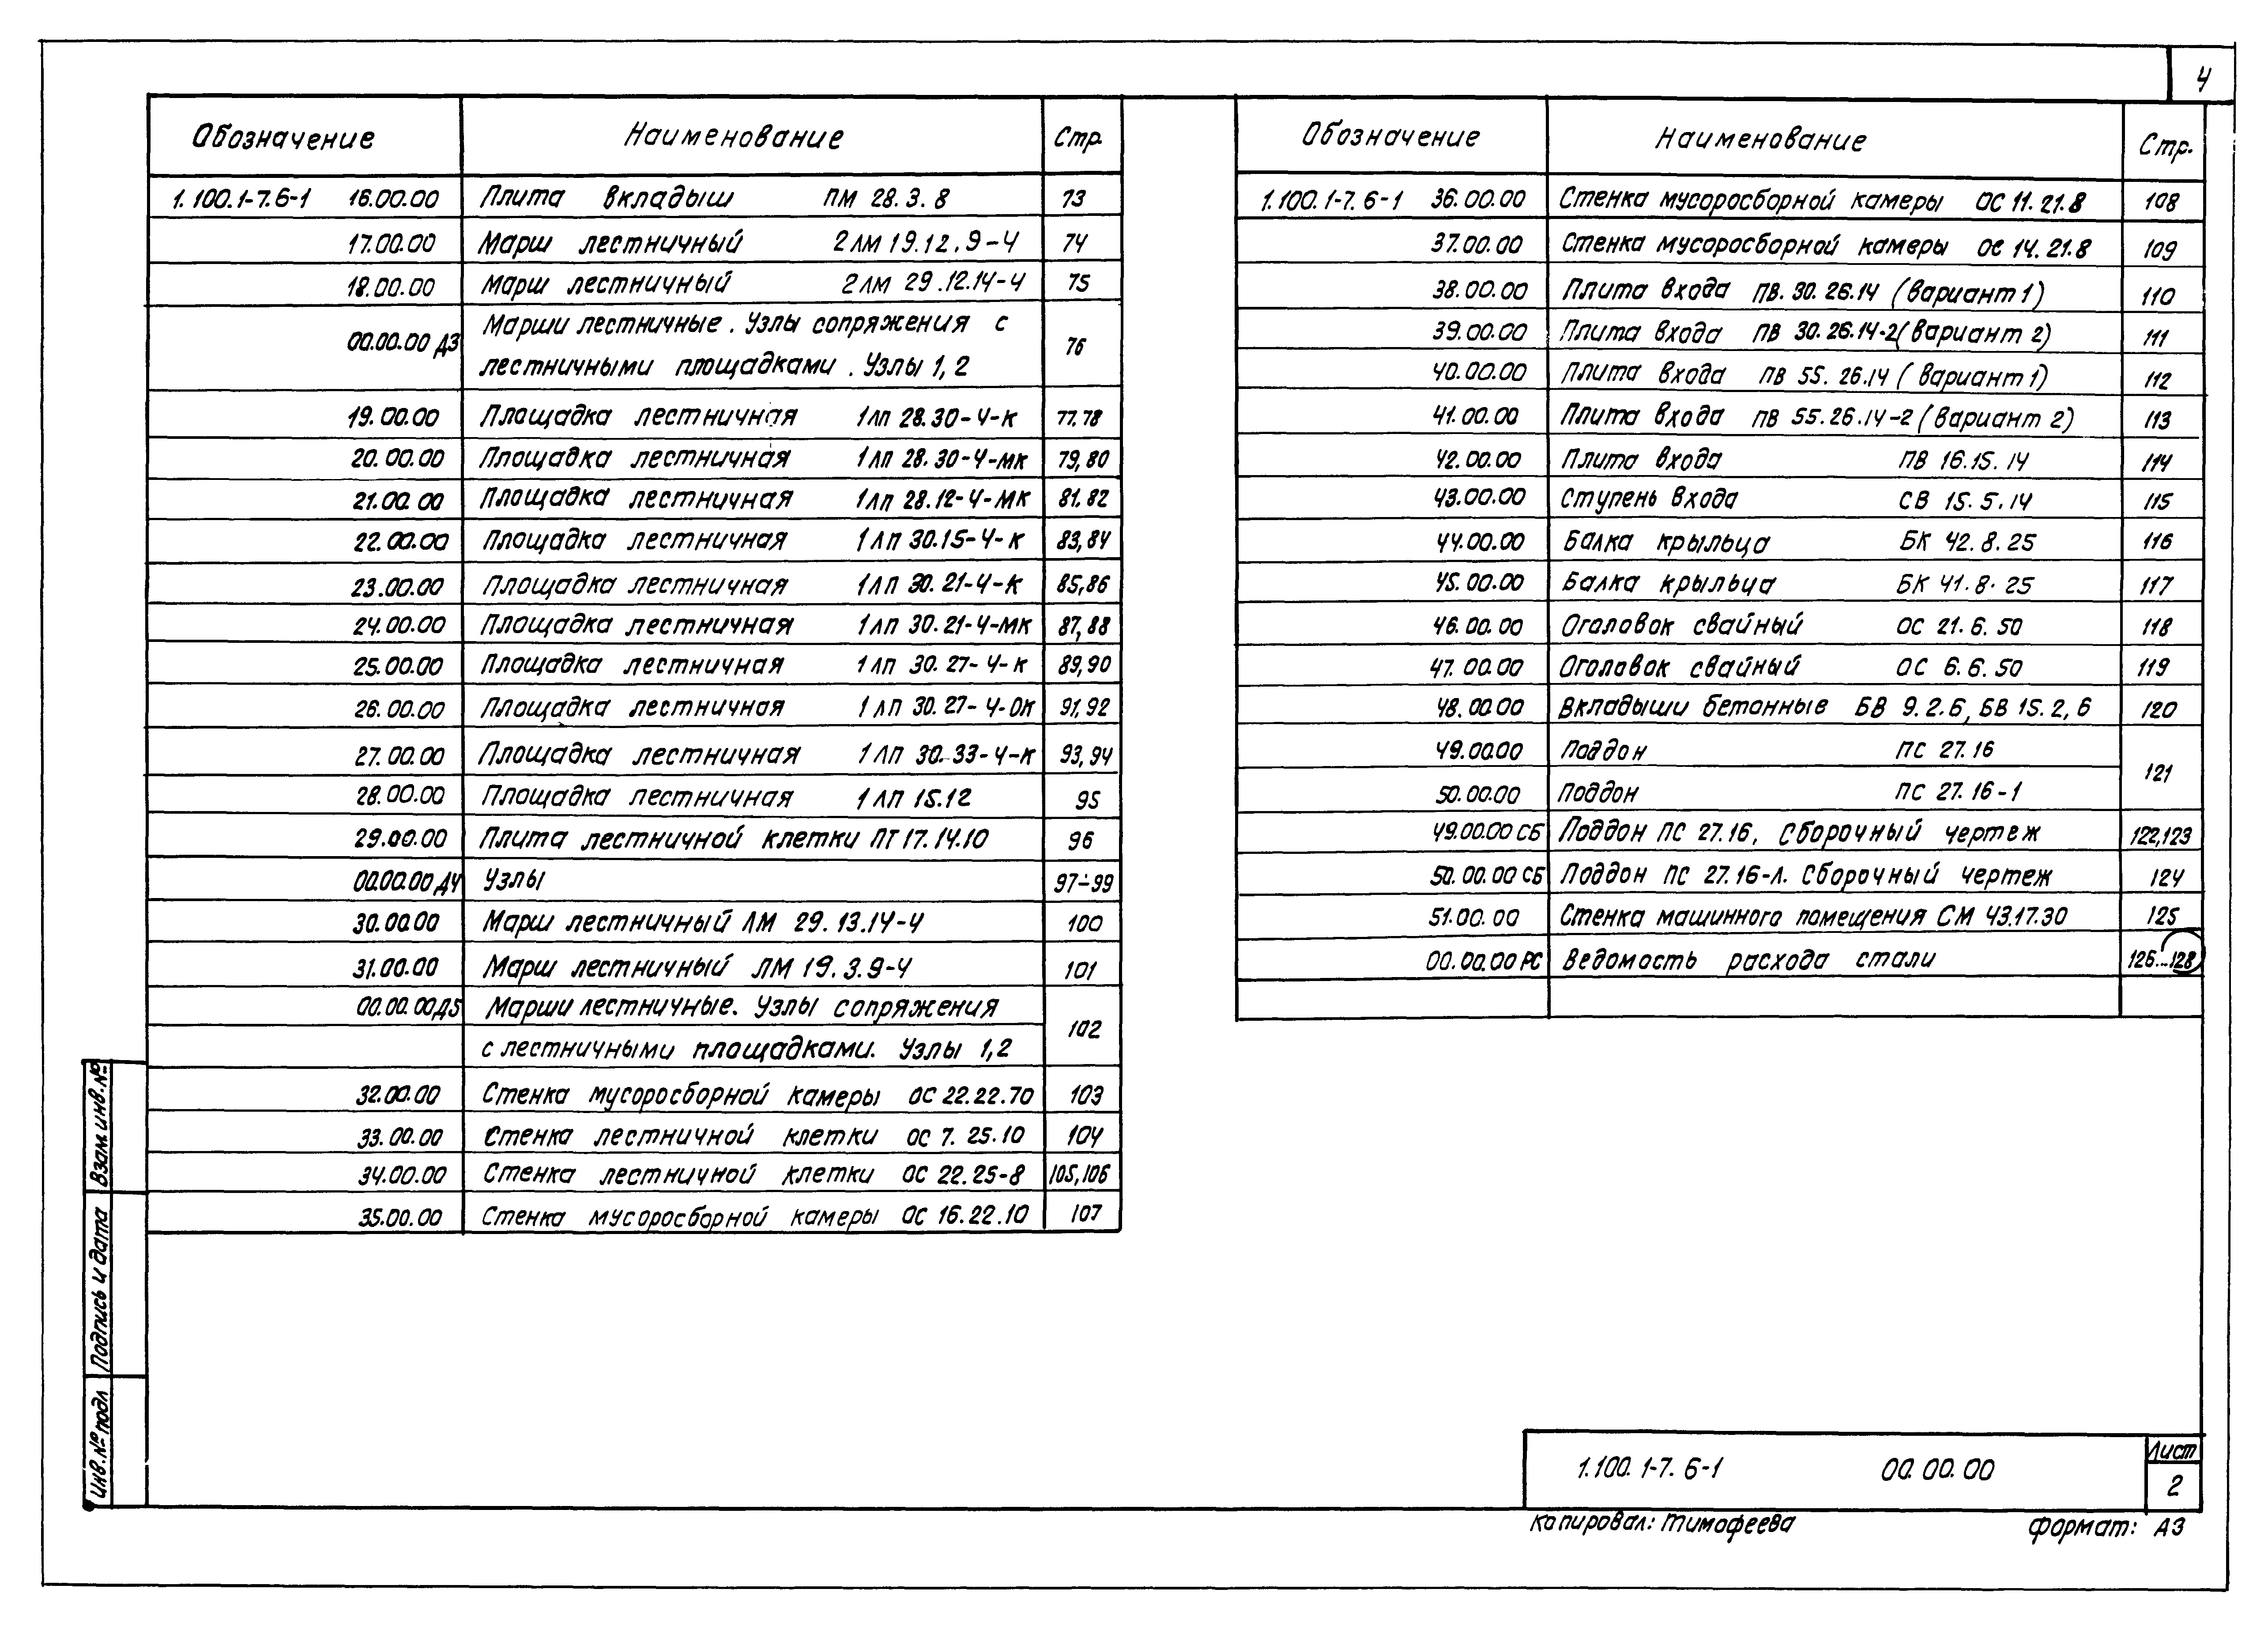 4
Обозначение Наименование Стр.
1.100.1-7.6-1 16.00.00 Плита вкладыш ПМ 28.3.8 73
17.00.00 Марш лестничный 2ЛМ 19.12.9-4 74
18.00.00 Марш лестничный 2ЛМ 29.12.14-4 75
00.00.00 Д3 Марши лестничные. Узлы сопряжения с
лестничными площадками. Узлы 1,2 76
19.00.00 Площадка лестничная 1ЛП 28.30-4-К 77.78
20.00.00 Площадка лестничная 1ЛП 28.30-4-МК 79,80
21.00.00 Площадка лестничная 1ЛП 28.12-4-МК 81.82
22.00.00 Площадка лестничная 1ЛП 30.15-4-К 83,84
23.00.00 Площадка лестничная 1ЛП 30.21-4-К 85,86
24.00.00 Площадка лестничная 1ЛП 30.21-4-МК 87,88
25.00.00 Площадка лестничная 1ЛП 30.27-4-К 89,90
26.00.00 Площадка лестничная 1ЛП 30.27-4-ОК 91,92
27.00.00 Площадка лестничная 1ЛП 30.33-4-К 93,94
28.00.00 Площадка лестничная 1ЛП 15.12 95
29.00.00 Плита лестничной клетки ПТ 17.14.10 96
00.00.00 Д4 Узлы 97-99
30.00.00 Марш лестничный ЛМ 29.13.14-4 100
31.00.00 Марш лестничный ЛМ 19.3.9-4 101
00.00.00 Д5 Марши лестничные. Узлы сопряжения
с лестничными площадками. Узлы 1,2 102
32.00.00 Стенка мусоросборной камеры ОС 22.22.70 103
33.00.00 Стенка лестничной клетки ОС 7.25.10 104
34.00.00 Стенка лестничной клетки ОС 22.25-8 105,106
35.00.00 Стенка мусоросборной камеры ОС 16.22.10 107
Обозначение Наименование Стр.
1.100.1-7.6-1 36.00.00 Стенка мусоросборной камеры ОС 11.21.8 108
37.00.00 Стенка мусоросборной камеры ОС 14.21.8 109
38.00.00 Плита входа ПВ.30.26.14 (вариант 1) 110
39.00.00 Плита входа ПВ 30.26.14-2 (вариант 2) 111
40.00.00 Плита входа ПВ 55.26.14 (вариант 1) 112
41.00.00 Плита входа ПВ 55.26.14-2 (вариант 2) 113
42.00.00 Плита входа ПВ 16.15.14 114
43.00.00 Ступень входа СВ 15.5.14 115
44.00.00 Балка крыльца БК 42.8.25 116
45.00.00 Балка крыльца БК 41.8.25 117
46.00.00 Оголовок свайный ОС 21.6.50 118
47.00.00 Оголовок свайный ОС 6.6.50 119
48.00.00 Вкладыши бетонные БВ 9.2.6, БВ 15.2,6 120
49.00.00 Поддон ПС 27.16
121
50.00.00 Поддон ПС 27.16-1
49.00.00 СБ Поддон ПС 27.16, Сборочный чертеж 122,123
50.00.00 СБ Поддон ПС 27.16-Л. Сборочный чертеж 124
51.00.00 Стенка машинного помещения СМ 43.17.30 125
00.00.00 РС Ведомость расхода стали 126...128
Взам.инв.№
Подпись и дата
Инв.№ подл
1.100.1-7.6-1 00.00.00 Лист
2
Копировал: Тимофеева Формат: А3